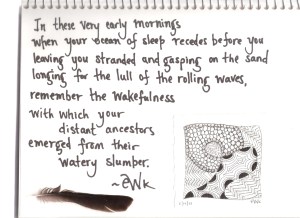 In these very early mornings
when your ocean of sleep recedes before you
leaving you stranded and gasping on the sand
longing for the lull of the rolling waves,
remember the wakefulness
with which your
distant ancestors
emerged from their
watery slumber.